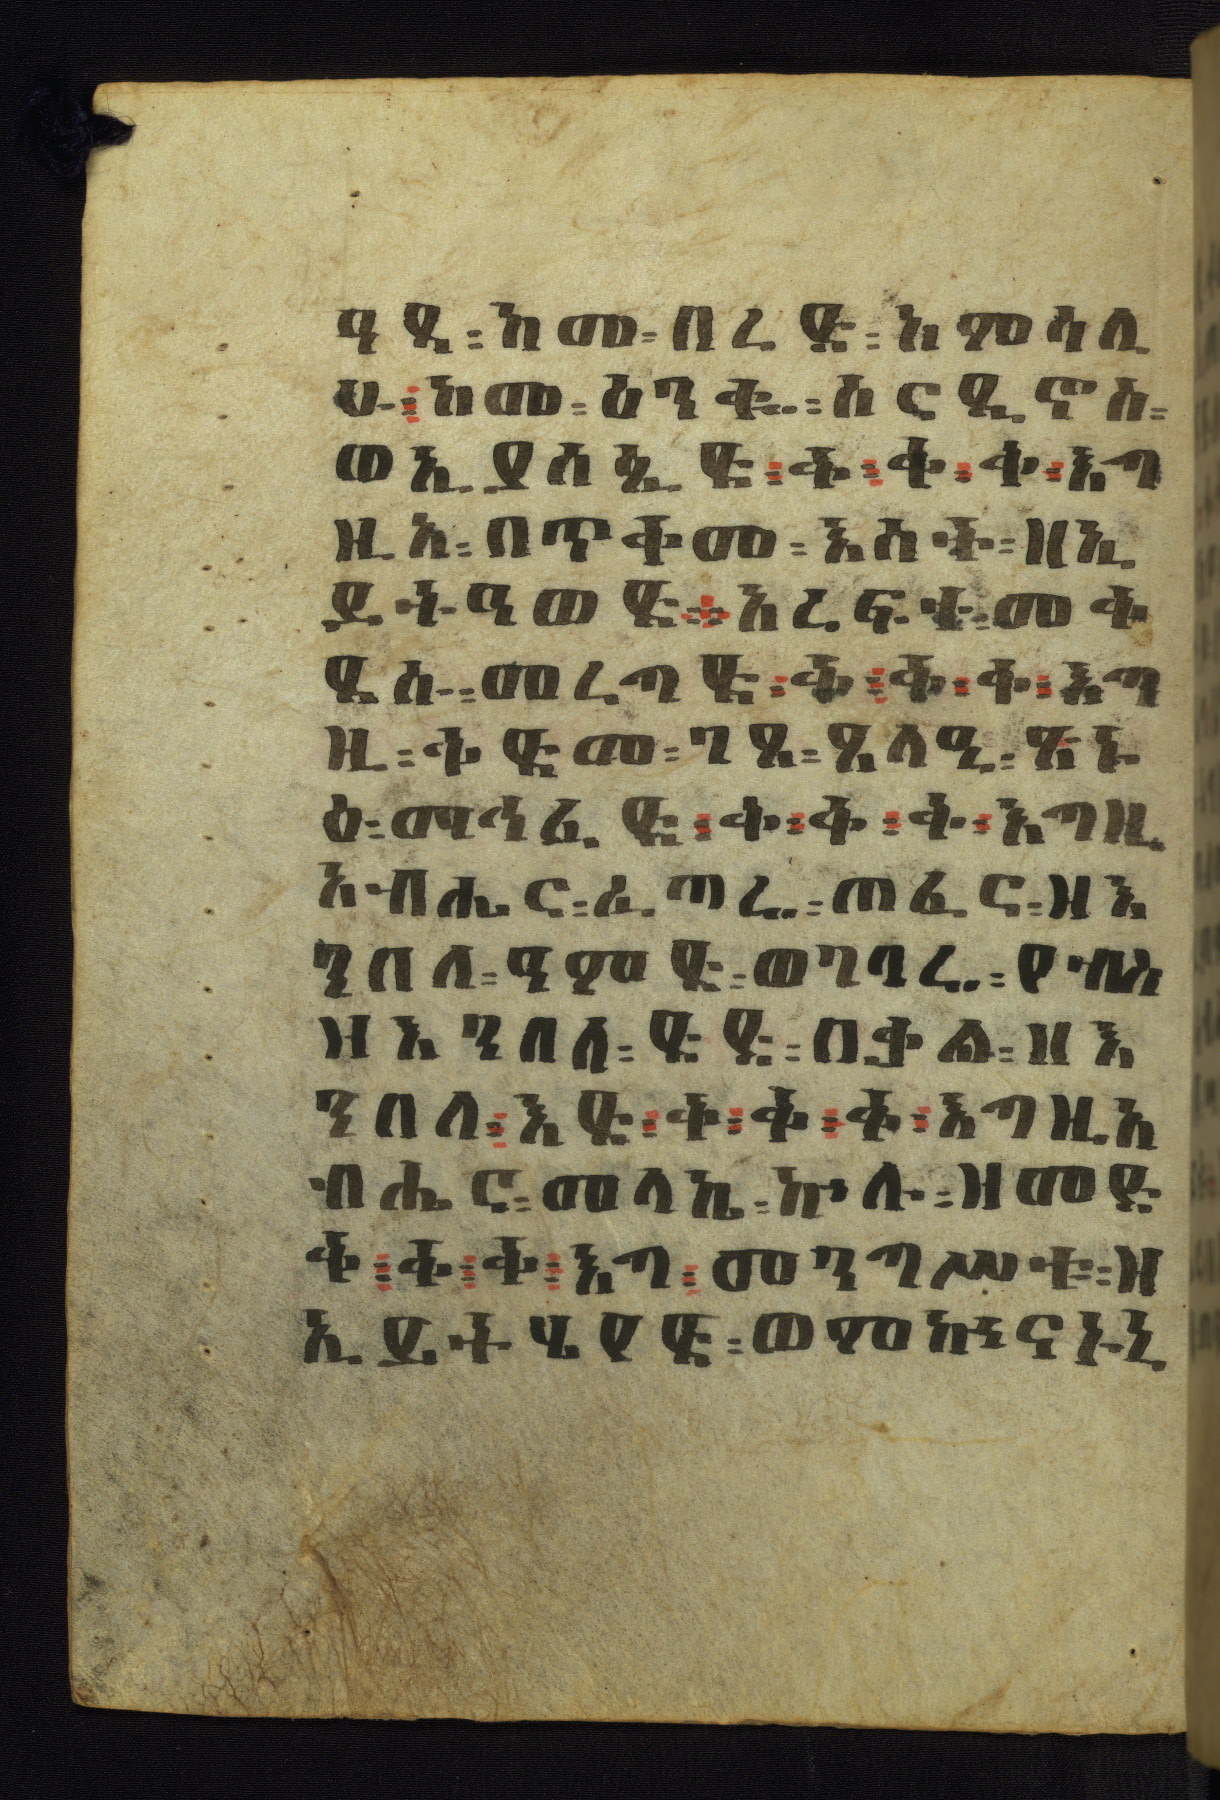 ዓዲ፡ ከመ፡ በረድ፡ አምሳሊ
ሁ፡ ከመ፡ ዕንቍ፡ ሰርዲኖስ፡
ወኢያሰጲድ፡ ቅ፡ ቅ፡ ቅ፡ እግ
ዚአ፡ በጥቅመ፡ እሳት፡ ዘኢ
ይትዓወድ፡ አረፍቱ፡ መቅ
ደሱ፡ መረግድ፡ ቅ፡ ቅ፡ ቅ፡ እግ
ዚ፡ ቅድመ፡ ገጹ፡ ጸላዒ፡ ጽኑ
ዕ፡ ማኅፈድ፡ ቅ፡ ቅ፡ ቅ፡ እግዚ
አብሔር፡ ፈጣሪ፡ ጠፈር፡ ዘእ
ንበለ፡ ዓምድ፡ ወገባሪ፡ የብስ
ዘእንበለ፡ ድድ፡ በቃል፡ ዘእ
ንበለ፡ እድ፡ ቅ፡ ቅ፡ ቅ፡ እግዚአ
ብሔር፡ መላኬ፡ ኵሉ፡ ዘመድ
ቅ፡ ቅ፡ ቅ፡ እግ፡ መንግሥቱ፡ ዘ
ኢይትሄየድ፡ ወምኵናኒ